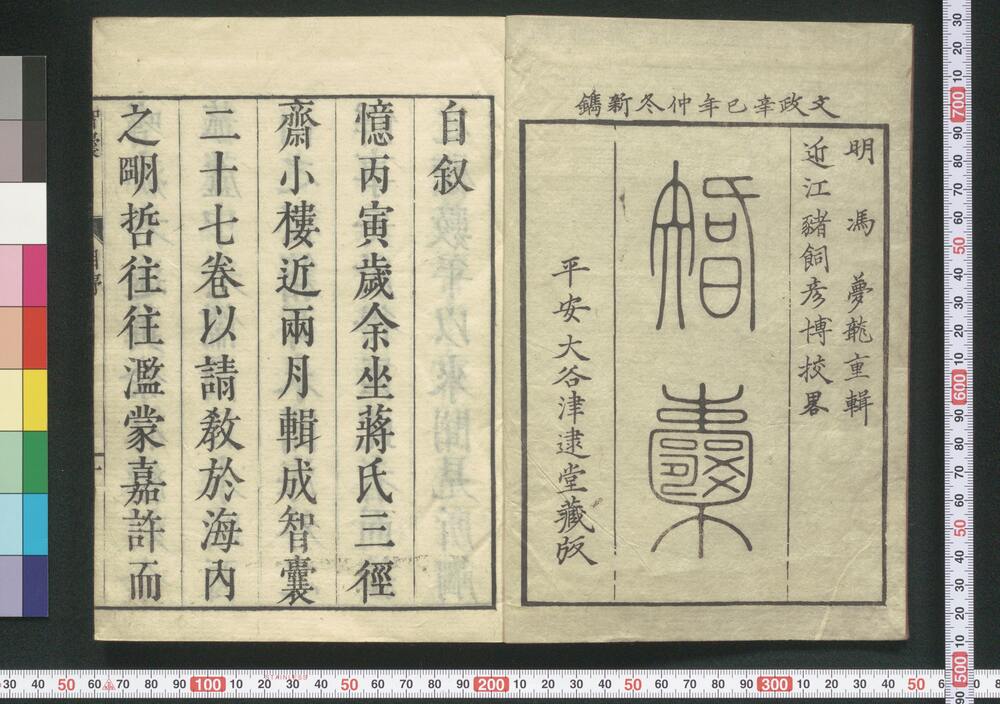 文政辛巳年仲冬新鐫
明 馮 夢龍重輯
近江豬飼彦博挍畧
智囊
平安大谷津逮堂藏版
自叙
憶丙寅歲余坐蔣氏三徑
齋小樓近兩月輯成智囊
二十七卷以請教於海內
之明哲往往濫蒙嘉許而